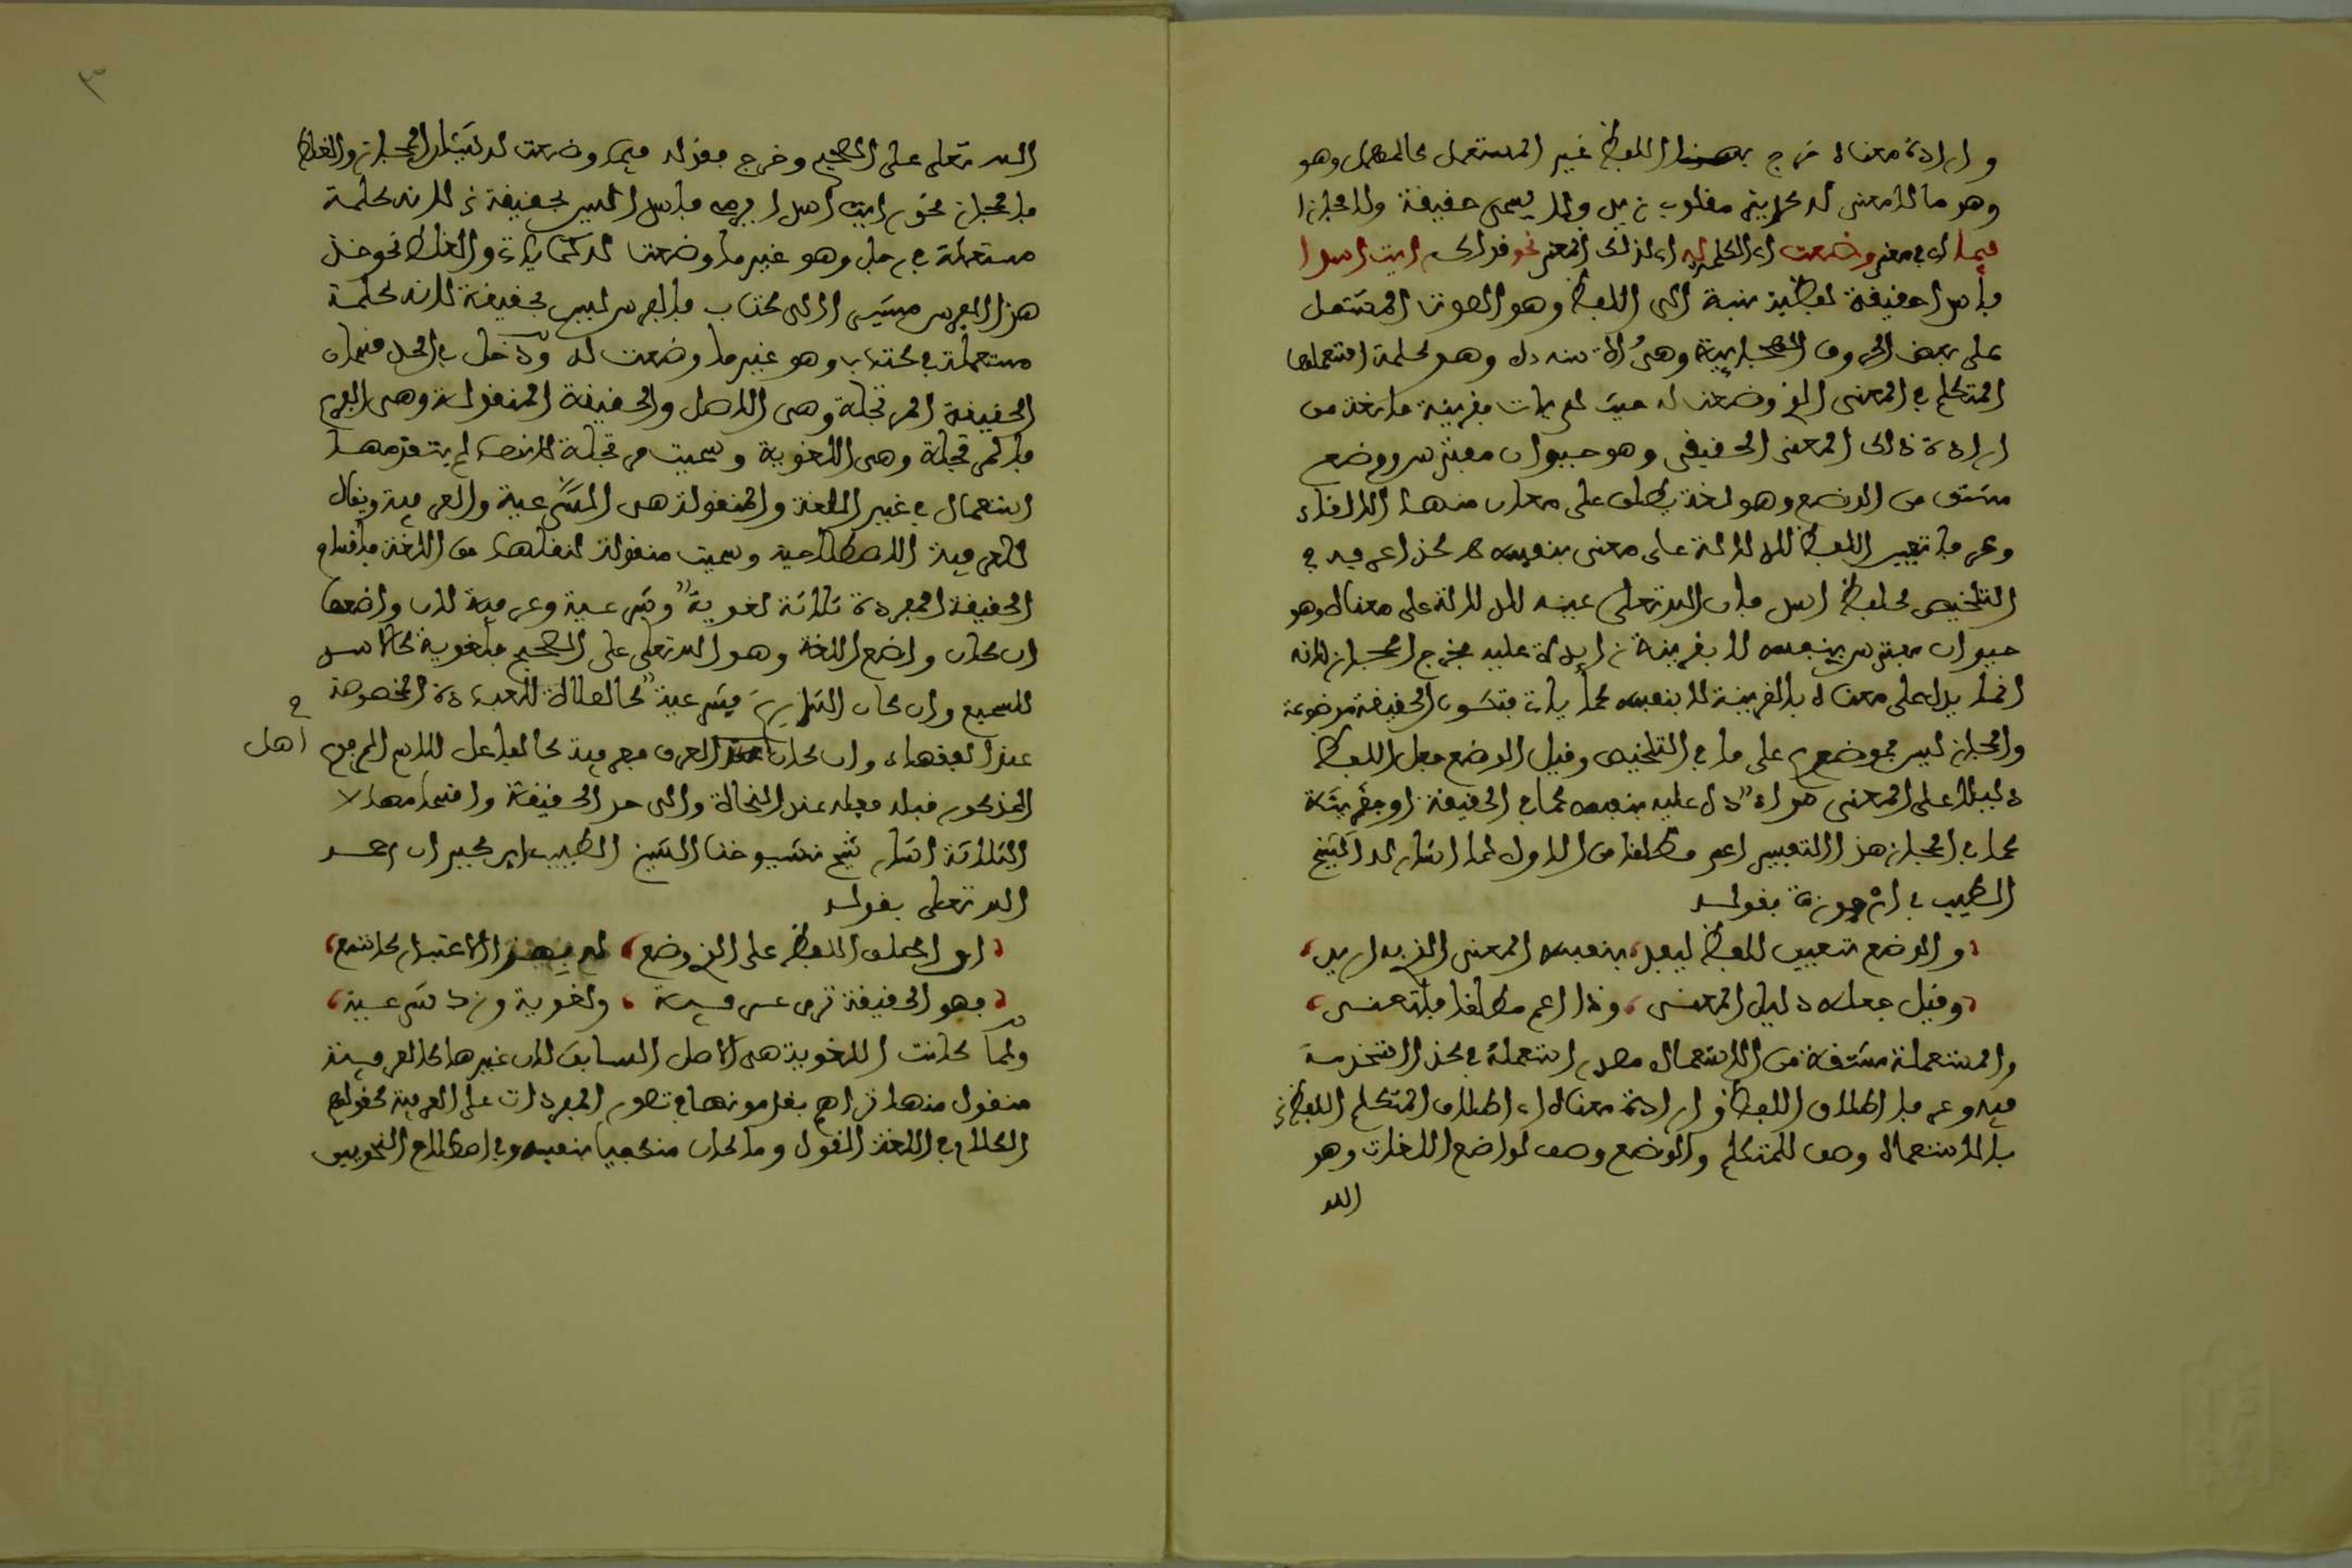 وارادة معناه خرج بهذا اللفظ غير المستعمل كالمهمل وهو
وهو ما لا معنى له كديز مقلوب زيد ولا يسمى حقيقة ولا مجازا
فيما اي في معنى وضعت اي الكلمة له اي لذلك المعنى نحو قولك رايت اسدا
فاسدا حقيقة لفظية نسبة الى اللفظ وهو الصوت المشتمل
على بعض الحروف الهجائية وهي الاسد دل وهو كلمة استعملها
المتكلم في المعنى الذي وضعت له حيث لم يات بقرينة مانعة من
ارادة ذلك المعنى الحقيقي وهو حيوان مفترس ووضع
مشتق من الوضع وهو لغة يطلق على معان منها الالقاء
وعرفا تعيين اللفظ للدلالة على معنى بنفسه كذا عرفه في
التلخيص كلفظ اسد فان الله تعلى عينه للدلالة على معناه وهو
حيوان مفترس بنفسه لا بقرينة زايدة عليه فخرج المجاز لانه
انما يدل على معناه بالقرينة لا بنفسه كما يات فتكون الحقيقة موضوعة
والمجاز ليس بموضوع على ما في التلخيص وقيل الوضع جعل اللفظ
دليلا على المعنى سواء دل عليه بنفسه كما في الحقيقة او بقرينة
كما في المجاز هذا التفسير اعم مطلقا من الاول كما اشار له الشيخ
الطيب في ارجوزة بقوله
والوضع تعيين للفظ ليفيد بنفسه المعنى الذي به اريد
وقيل جعله دليل المعنى وذا اعم مطلقا فلتعنى
والمستعملة مشتقة من الاستعمال مصدر استعملة في كذا استخدمه
فيه وعرفا اطلاق اللفظ وارادة معناه اي اطلاق المتكلم اللفظ
بالاستعمال وصف للمتكلم والوضع وصف لواضع اللغات وهو
الله
٣
الله تعلى على الصحيح وخرج بقوله فيما وضعت له شيئان المجاز والغلط
فالمجاز نحو رايت اسدا يرمي فاسدا ليس بحقيقة لانه كلمة
مستعملة في رجل وهو غير ما وضعت له كما يات والغلط نحو خذ
هذا الفرس مشيرا الى كتاب فالفرس ليس بحقيقة لانه كلمة
مستعملة في كتاب وهو غير ما وضعت له ودخل في الحد قسمان
الحقيقة المرتجلة وهي الاصل والحقيقة المنقولة وهي الفرع
فالمرتجلة وهي اللغوية وسميت مرتجلة لانها لم يتقدمها
استعمال في غير اللغة والمنقولة هي الشرعية والعرفية ويقال
للعرفية الاصطلاحية وسميت منقولة لنقلها من اللغة فاقسام
الحقيقة المفردة ثلاثة لغوية وشرعية وعرفية لان واضعها
ان كان واضع اللغة وهو الله تعلى على الصحيح فلغوية كالاسد
للسبع وان كان الشارع فشرعية كالصلاة للعبادة المخصوصة
عند الفقهاء وان كان اهل العرف فعرفية كالفاعل للاسم المرفوع
اهل
المذكور قبله فعله عند النحاة والى حد الحقيقة واقسامها
الثلاثة اشار شيخ شيوخنا الشيخ الطيب ابن كيران رحمه
الله تعلى بقوله
ان اطلق اللفظ على الذي وضع له بهذا الاعتبار كاتبع
فهو الحقيقة ترى عرفية ولغوية وزد شرعية
ولما كانت اللغوية هي الاصل السابق لان غيرها كالعرفية
منقول منها تراهم يقدمونها في تصور المفردات على العرفية كقولهم
الكلام في اللغة القول وما كان مكتفيا بنفسه وفي اصطلاح النحويين